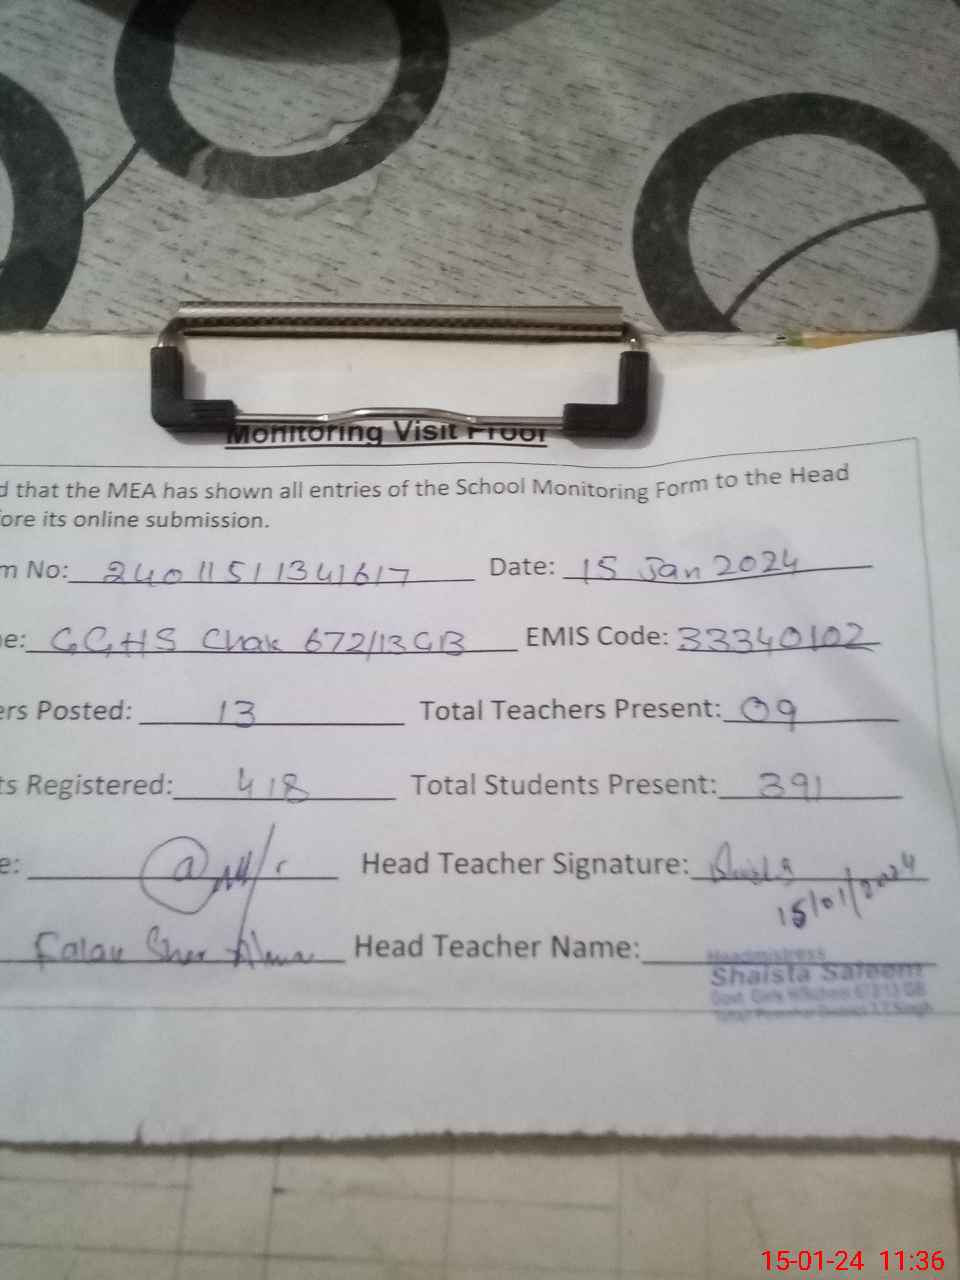 Monitoring Visit Proof
d that the MEA has shown all entries of the School Monitoring Form to the Head
fore its online submission.
m No: 24011511341617 Date: 15 Jan 2024
e: GGHS Chak 672/13 GB EMIS Code: 33340102
ers Posted: 13 Total Teachers Present: 09
ts Registered: 418 Total Students Present: 391
e: Head Teacher Signature:
15/01/2024
Sher Head Teacher Name:
Headmistress
Shaista Saleem
Govt. Girls H/School 672/13 GB
15-01-24 11:36